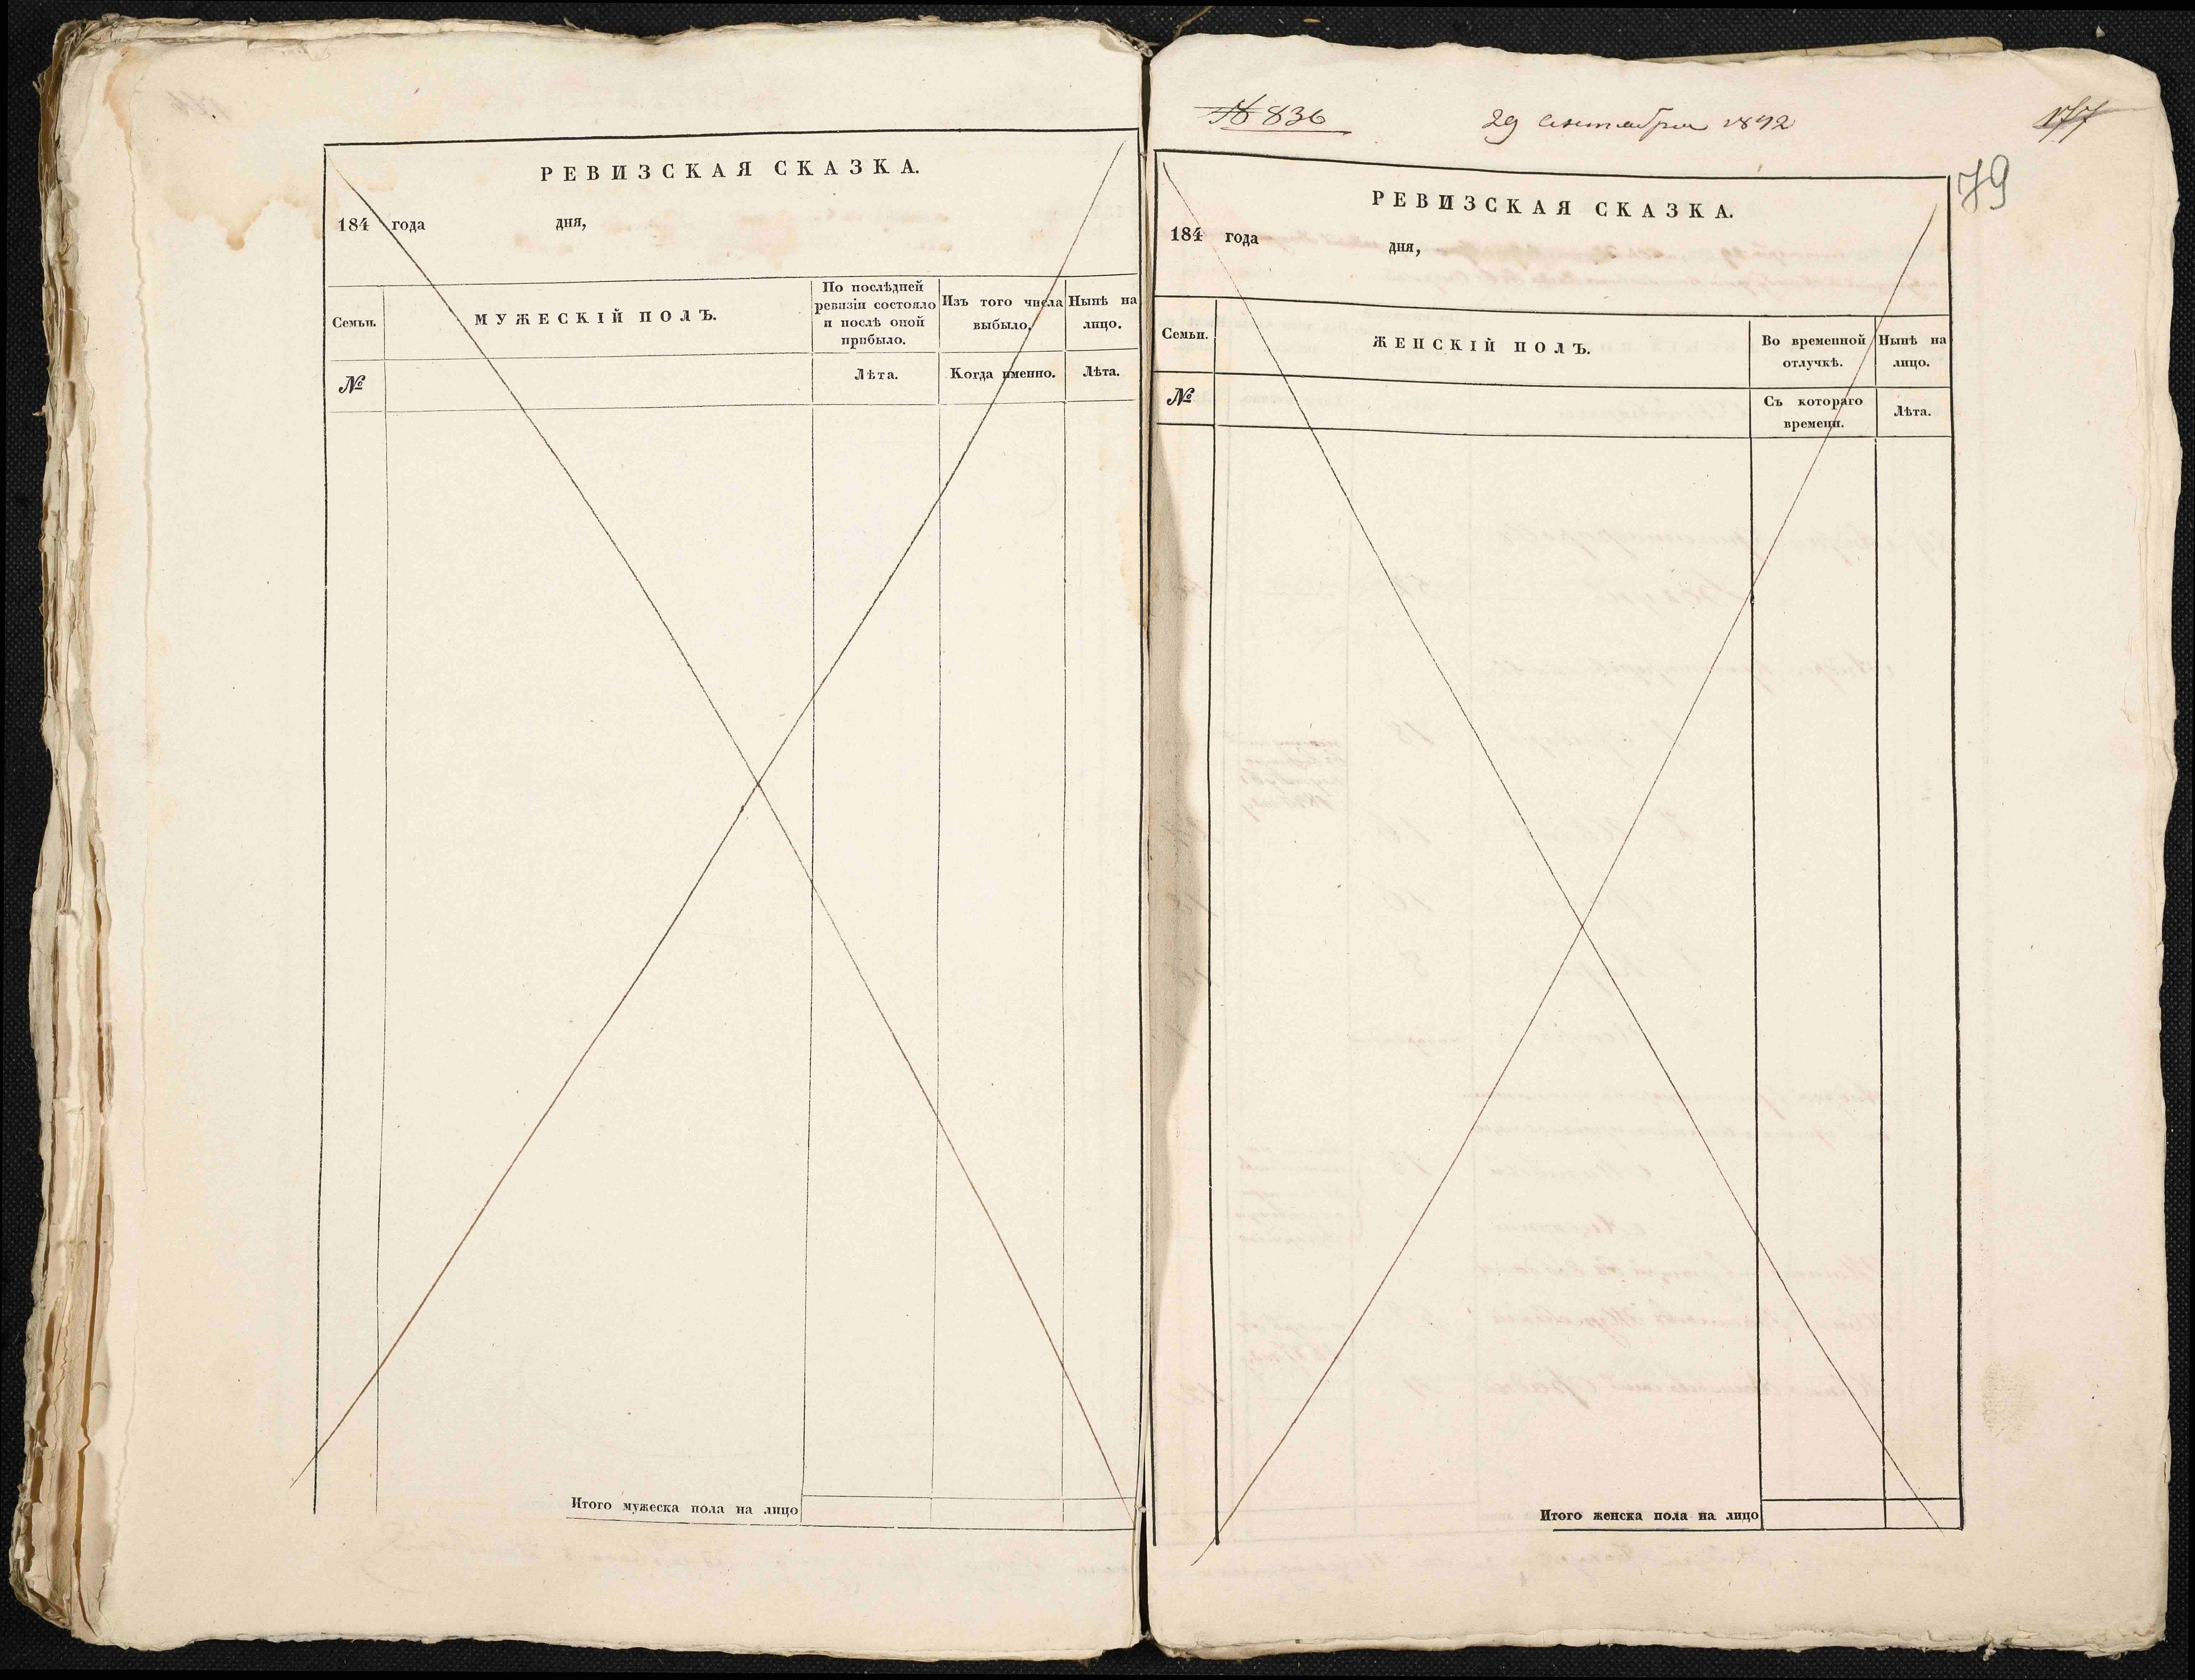 РЕВИЗСКАЯ СКАЗКА.
184 года дня,
Семьи.
МУЖЕСКІЙ ПОЛЪ.
По послѣдней
ревизіи состояло
и послѣ оной
прибыло.
Изъ того числа
выбыло,
Нынѣ на
лицо.
№
Лѣта.
Когда именно.
Лѣта.
Итого мужеска пола на лицо
№ 836
29 сентября 1842
177
79
РЕВИЗСКАЯ СКАЗКА.
184 года дня,
Семьи.
ЖЕНСКІЙ ПОЛЪ.
Во временной
отлучкѣ.
Нынѣ на
лицо.
№
Съ котораго
времени.
Лѣта.
Итого женска пола на лицо